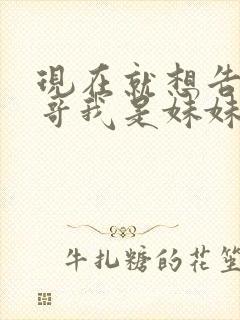 現在就想告
哥我是妹妹
牛扎糖的花笙